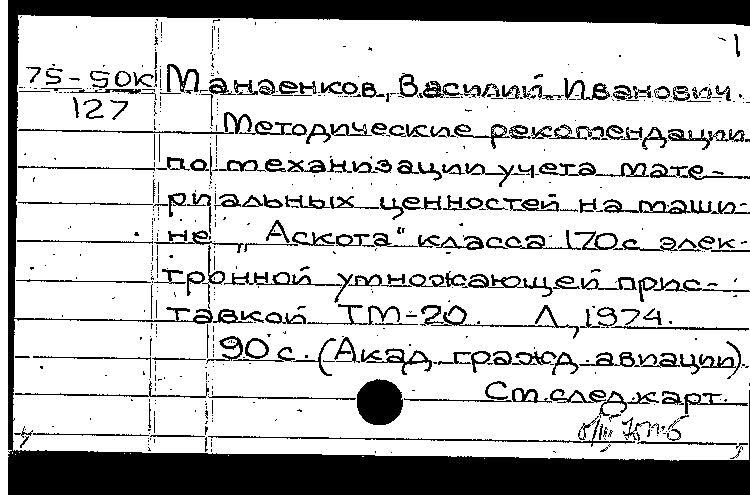 1
75-50К Манаенков, Василий Иванович.
127
Методические рекомендации
по механизации учета мате-
риальных ценностей на маши-
не „Аскота" класса 170 с элек-
тронной умножающей прис-
тавкой ТМ-20. Л, 1974.
90 с. (Акад. гражд. авиации)
См. след. карт.